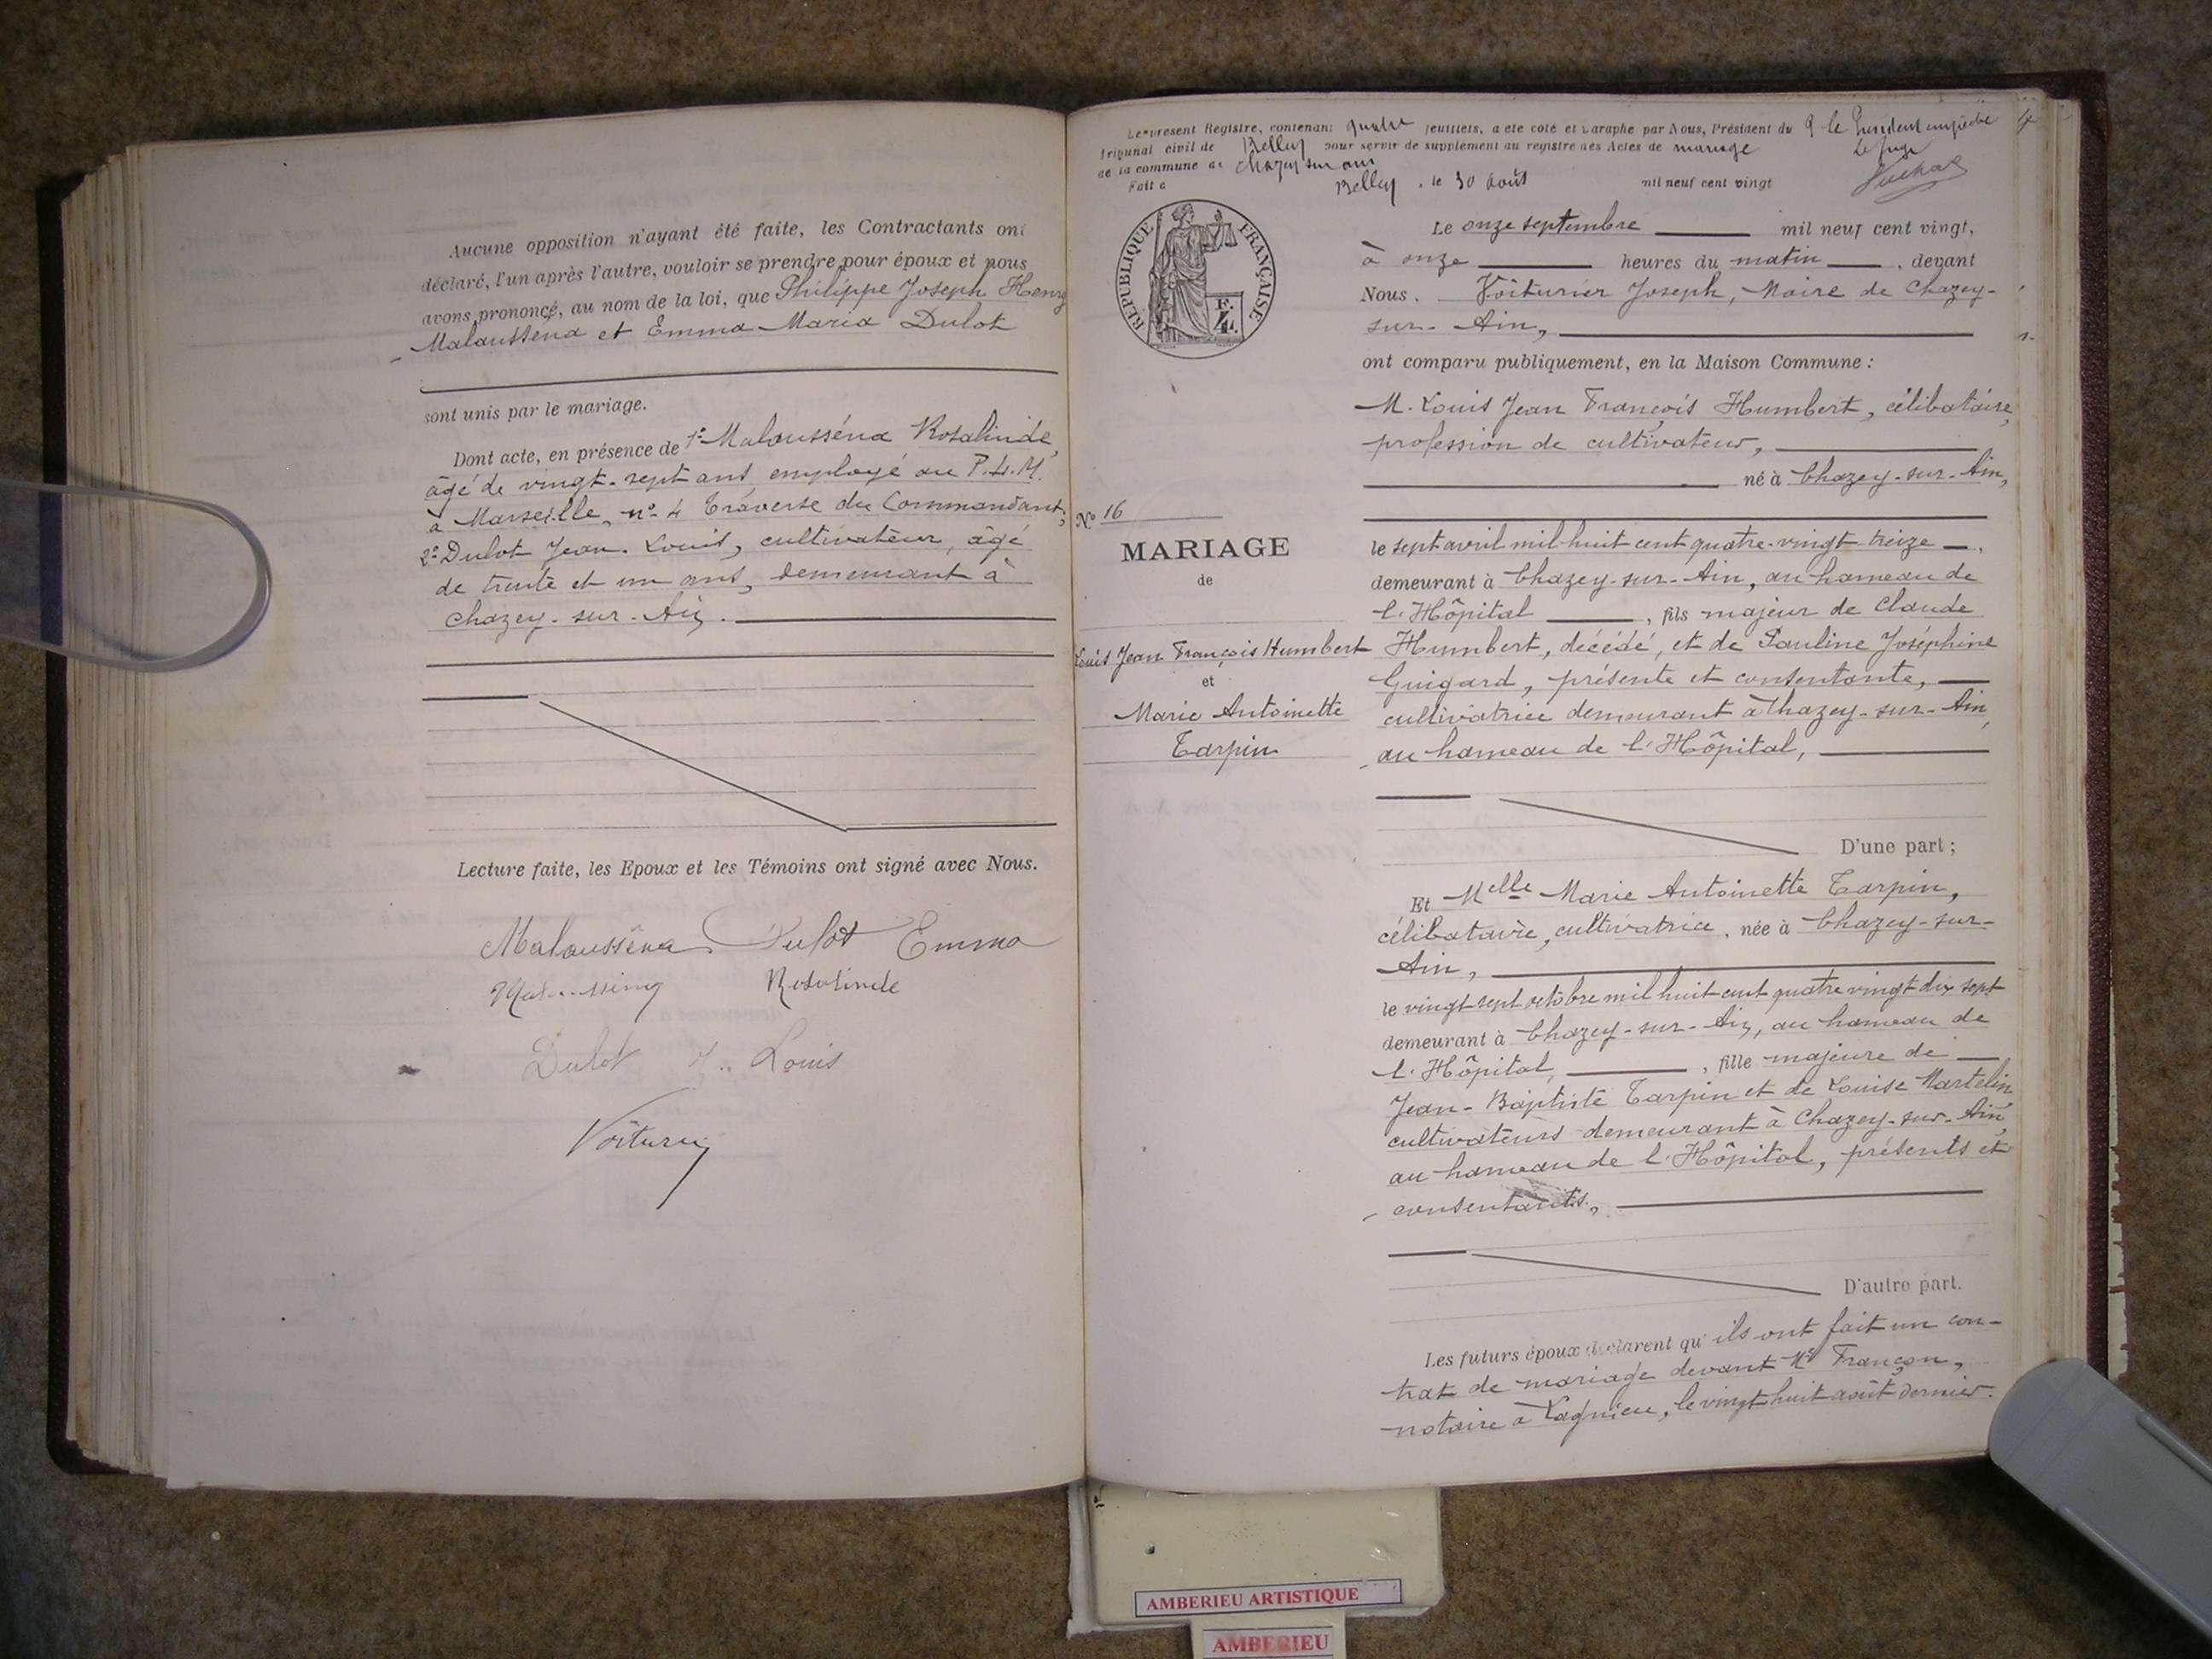 Aucune opposition n'ayant été faite, les Contractants ont
déclaré, l'un après l'autre, vouloir se prendre pour époux et nous
avons prononcé, au nom de la loi, que Philippe Joseph Henry
Malausséna et Emma Maria Dulot
sont unis par le mariage.
Dont acte, en présence de 1º Malausséna Rosalinde,
âgé de vingt-sept ans employé au P.L.M.
à Marseille, nº 4 Traverse du Commandant;
2º Dulot Jean-Louis, cultivateur, âgé
de trente et un ans, demeurant à
Chazey-sur-Ain.
Lecture faite, les Epoux et les Témoins ont signé avec Nous.
Malausséna Dulot Emma
Rosalinde
Dulot J. Louis
Voiturier
Le present Registre, contenant quatre feuillets, a été coté et paraphé par Nous, Président du
Tribunal civil de Belley pour servir de supplement au registre des Actes de mariage
de la commune de Chazey sur ain
Fait a Belley, le 30 août mil neuf cent vingt
le Président empêché
Le juge
4
RÉPUBLIQUE FRANÇAISE
Le onze septembre mil neuf cent vingt,
à onze heures du matin, devant
Nous, Voiturier Joseph, Maire de Chazey-
sur-Ain,
ont comparu publiquement, en la Maison Commune :
M. Louis Jean François Humbert, célibataire,
profession de cultivateur,
né à Chazey-sur-Ain,
Nº 16
MARIAGE
de
Louis Jean François Humbert
et
Marie Antoinette
Tarpin
le sept avril mil huit cent quatre-vingt treize,
demeurant à Chazey-sur-Ain, au hameau de
l'Hôpital, fils majeur de Claude
Humbert, décédé, et de Pauline Joséphine
Guigard, présente et consentante,
cultivatrice demeurant à Chazey-sur-Ain,
au hameau de l'Hôpital,
D'une part ;
Et Melle Marie Antoinette Tarpin,
célibataire, cultivatrice, née à Chazey-sur-
Ain,
le vingt sept octobre mil huit cent quatre vingt dix sept
demeurant à Chazey-sur-Ain, au hameau de
l'Hôpital, fille majeure de
Jean-Baptiste Tarpin et de Louise Martelin,
cultivateurs demeurant à Chazey-sur-Ain,
au hameau de l'Hôpital, présents et
consentants,
D'autre part.
Les futurs époux déclarent qu'ils ont fait un con-
trat de mariage devant Me Françon,
notaire à Lagnieu, le vingt huit août dernier.
AMBERIEU ARTISTIQUE
AMBERIEU